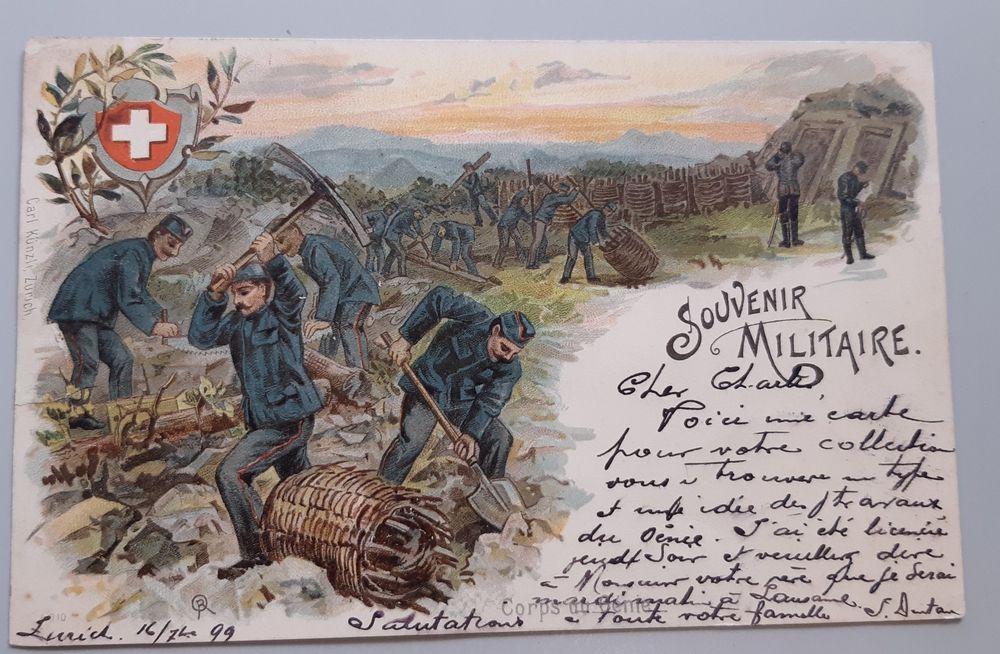 Carl Künzli, Zürich
SOUVENIR
MILITAIRE.
Cher Charles
Voici une carte
pour votre collection
vous y trouverez un type
et une idée des travaux
du Génie. J'ai été licencié
jeudi soir et veuillez dire
à Monsieur votre père que je serai
mardi matin à Lausanne.
Corps du Génie
Salutations à toute votre famille
Zurich. 16/7bre 99